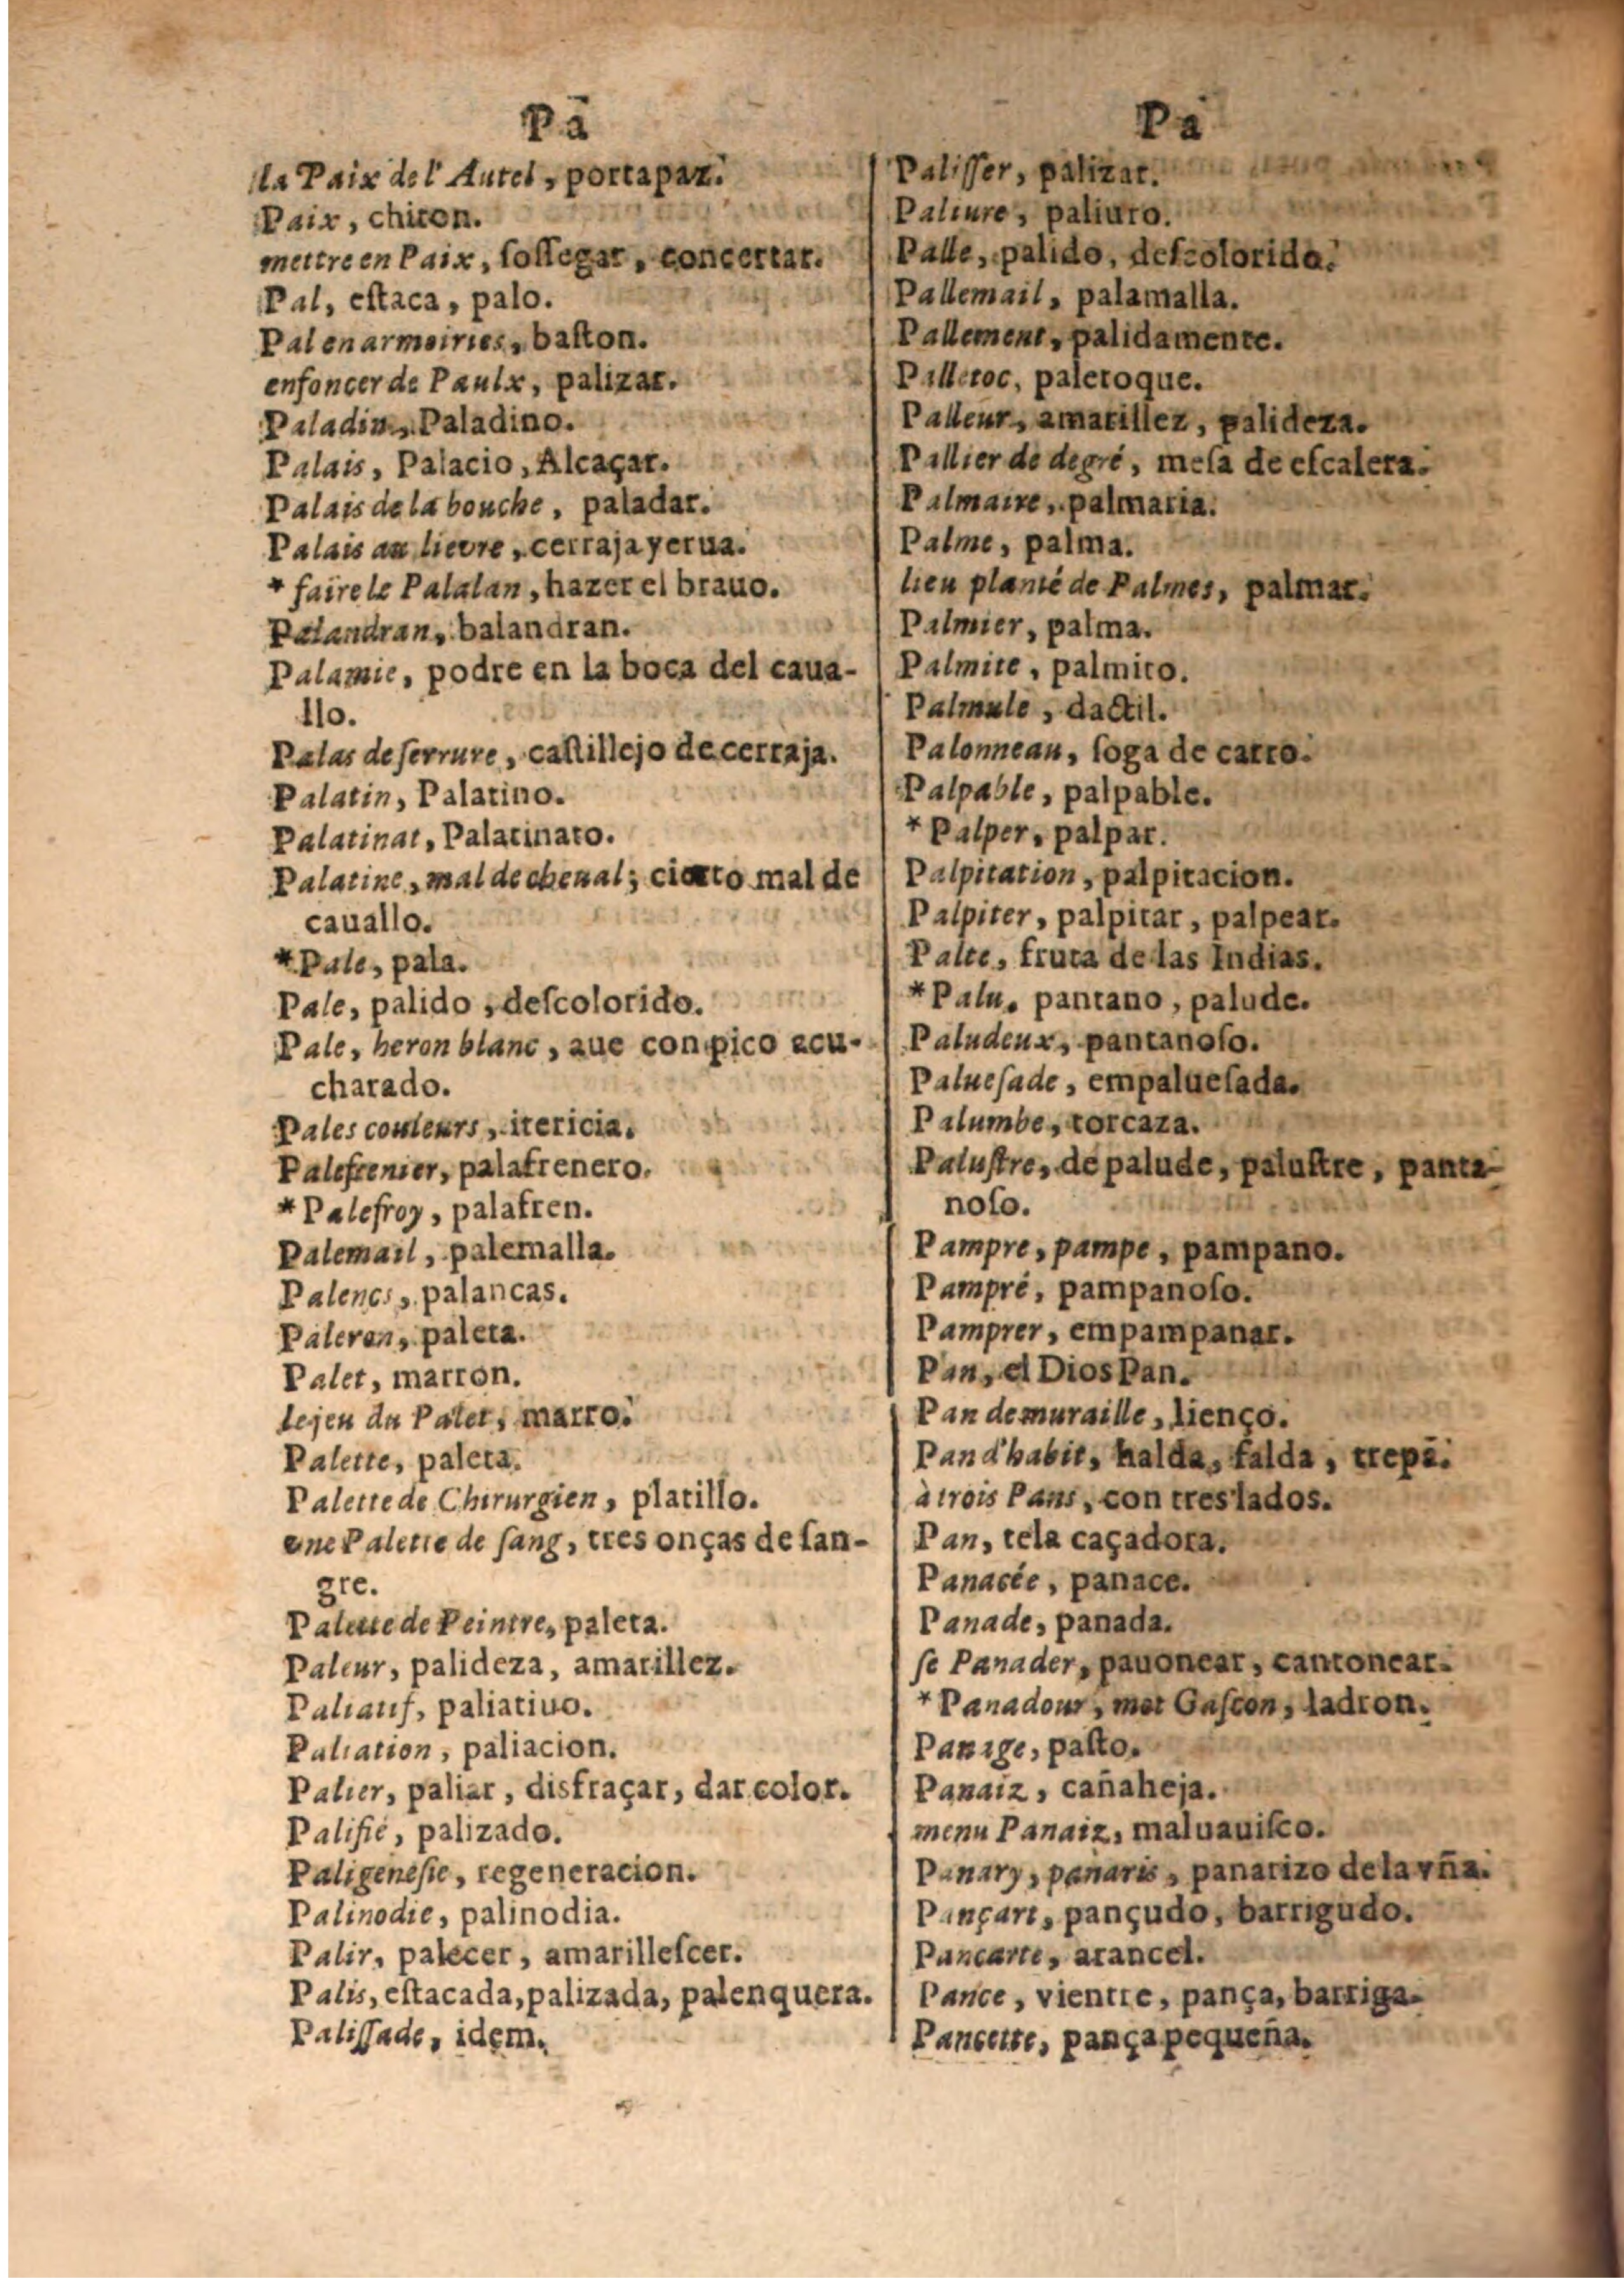 Pa
la Paix de l'Autel, portapaz.
Paix, chiton.
mettre en Paix, ſoſſegar, concertar.
Pal, eſtaca, palo.
Pal en armoiries, baſton.
enfoncer de Paulx, palizar.
Paladin, Paladino.
Palais, Palacio, Alcaçar.
Palais de la bouche, paladar.
Palais au lievre, cerraja yerua.
* faire le Palalan, hazer el brauo.
Palandran, balandran.
Palamie, podre en la boca del caua-
llo.
Palas de ſerrure, caſtillejo de cerraja.
Palatin, Palatino.
Palatinat, Palatinato.
Palatine, mal de cheual; cierto mal de
cauallo.
*Pale, pala.
Pale, palido, deſcolorido.
Pale, heron blanc, aue con pico acu-
charado.
Pales couleurs, itericia.
Palefrenier, palafrenero.
*Palefroy, palafren.
Palemail, palemalla.
Palencs, palancas.
Paleron, paleta.
Palet, marron.
le jeu du Palet, marro.
Palette, paleta.
Palette de Chirurgien, platillo.
vne Palette de ſang, tres onças de ſan-
gre.
Palette de Peintre, paleta.
Paleur, palideza, amarillez.
Paliatif, paliatiuo.
Paliation, paliacion.
Palier, paliar, disfraçar, dar color.
Palifié, palizado.
Paligeneſie, regeneracion.
Palinodie, palinodia.
Palir, palecer, amarilleſcer.
Palis, eſtacada, palizada, palenquera.
Paliſſade, idem.
Pa
Paliſſer, palizar.
Paliure, paliuro.
Palle, palido, deſcolorido.
Pallemail, palamalla.
Pallement, palidamente.
Palletoc, paletoque.
Palleur, amarillez, palideza.
Pallier de degré, meſa de eſcalera.
Palmaire, palmaria.
Palme, palma.
lieu planté de Palmes, palmar.
Palmier, palma.
Palmite, palmito.
Palmule, dactil.
Palonneau, ſoga de carro.
Palpable, palpable.
*Palper, palpar.
Palpitation, palpitacion.
Palpiter, palpitar, palpear.
Palte, fruta de las Indias.
*Palu, pantano, palude.
Paludeux, pantanoſo.
Palueſade, empalueſada.
Palumbe, torcaza.
Paluſtre, de palude, paluſtre, panta-
noſo.
Pampre, pampe, pampano.
Pampré, pampanoſo.
Pamprer, empampanar.
Pan, el Dios Pan.
Pan de muraille, lienço.
Pan d'habit, halda, falda, trepā.
à trois Pans, con tres lados.
Pan, tela caçadora.
Panacée, panace.
Panade, panada.
ſe Panader, pauonear, cantonear.
*Panadour, mot Gaſcon, ladron.
Panage, paſto.
Panaiz, cañaheja.
menu Panaiz, maluauiſco.
Panary, panaris, panarizo de la vña.
Pançart, pançudo, barrigudo.
Pancarte, arancel.
Pance, vientre, pança, barriga.
Pancette, pança pequeña.